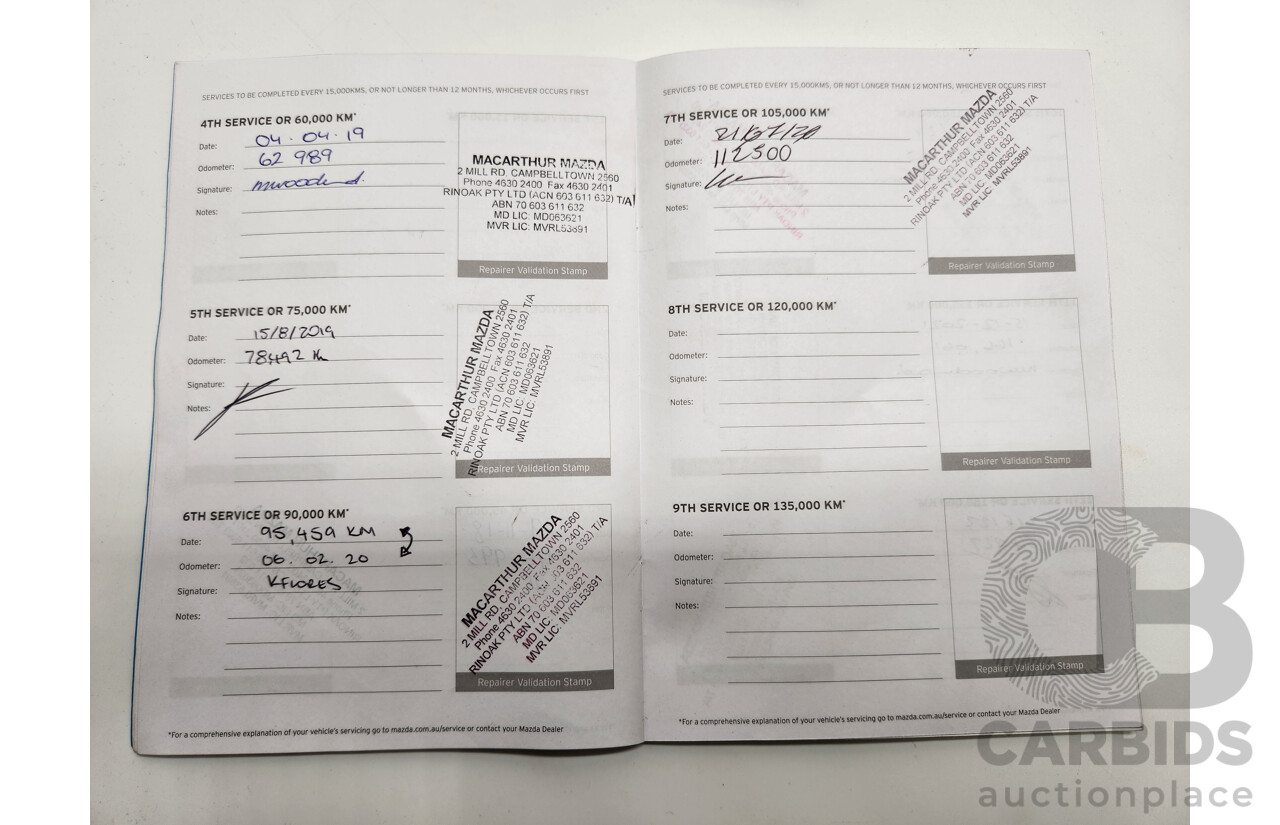 SERVICES TO BE COMPLETED EVERY 15,000KMS, OR NOT LONGER THAN 12 MONTHS, WHICHEVER OCCURS FIRST
4TH SERVICE OR 60,000 KM*
Date: 04.04.19
Odometer: 62 989
Signature:
Notes:
MACARTHUR MAZDA
2 MILL RD, CAMPBELLTOWN 2560
Phone 4630 2400 Fax 4630 2401
RINOAK PTY LTD (ACN 603 611 632) T/A
ABN 70 603 611 632
MD LIC: MD063621
MVR LIC: MVRL53891
Repairer Validation Stamp
5TH SERVICE OR 75,000 KM*
Date: 15/8/2019
Odometer: 78492 Km
Signature:
Notes:
MACARTHUR MAZDA
2 MILL RD, CAMPBELLTOWN 2560
Phone 4630 2400 Fax 4630 2401
RINOAK PTY LTD (ACN 603 611 632) T/A
ABN 70 603 611 632
MD LIC: MD063621
MVR LIC: MVRL53891
Repairer Validation Stamp
6TH SERVICE OR 90,000 KM*
Date: 95,459 KM
Odometer: 06.02.20
Signature: KFLORES
Notes:
MACARTHUR MAZDA
2 MILL RD, CAMPBELLTOWN 2560
Phone 4630 2400 Fax 4630 2401
RINOAK PTY LTD (ACN 603 611 632) T/A
ABN 70 603 611 632
MD LIC: MD063621
MVR LIC: MVRL53891
Repairer Validation Stamp
*For a comprehensive explanation of your vehicle's servicing go to mazda.com.au/service or contact your Mazda Dealer
SERVICES TO BE COMPLETED EVERY 15,000KMS, OR NOT LONGER THAN 12 MONTHS, WHICHEVER OCCURS FIRST
7TH SERVICE OR 105,000 KM*
Date:
Odometer: 112500
Signature:
Notes:
MACARTHUR MAZDA
2 MILL RD, CAMPBELLTOWN 2560
Phone 4630 2400 Fax 4630 2401
RINOAK PTY LTD (ACN 603 611 632) T/A
ABN 70 603 611 632
MD LIC: MD063621
MVR LIC: MVRL53891
Repairer Validation Stamp
8TH SERVICE OR 120,000 KM*
Date:
Odometer:
Signature:
Notes:
Repairer Validation Stamp
9TH SERVICE OR 135,000 KM*
Date:
Odometer:
Signature:
Notes:
Repairer Validation Stamp
*For a comprehensive explanation of your vehicle's servicing go to mazda.com.au/service or contact your Mazda Dealer
CB
CARBIDS
auctionplace